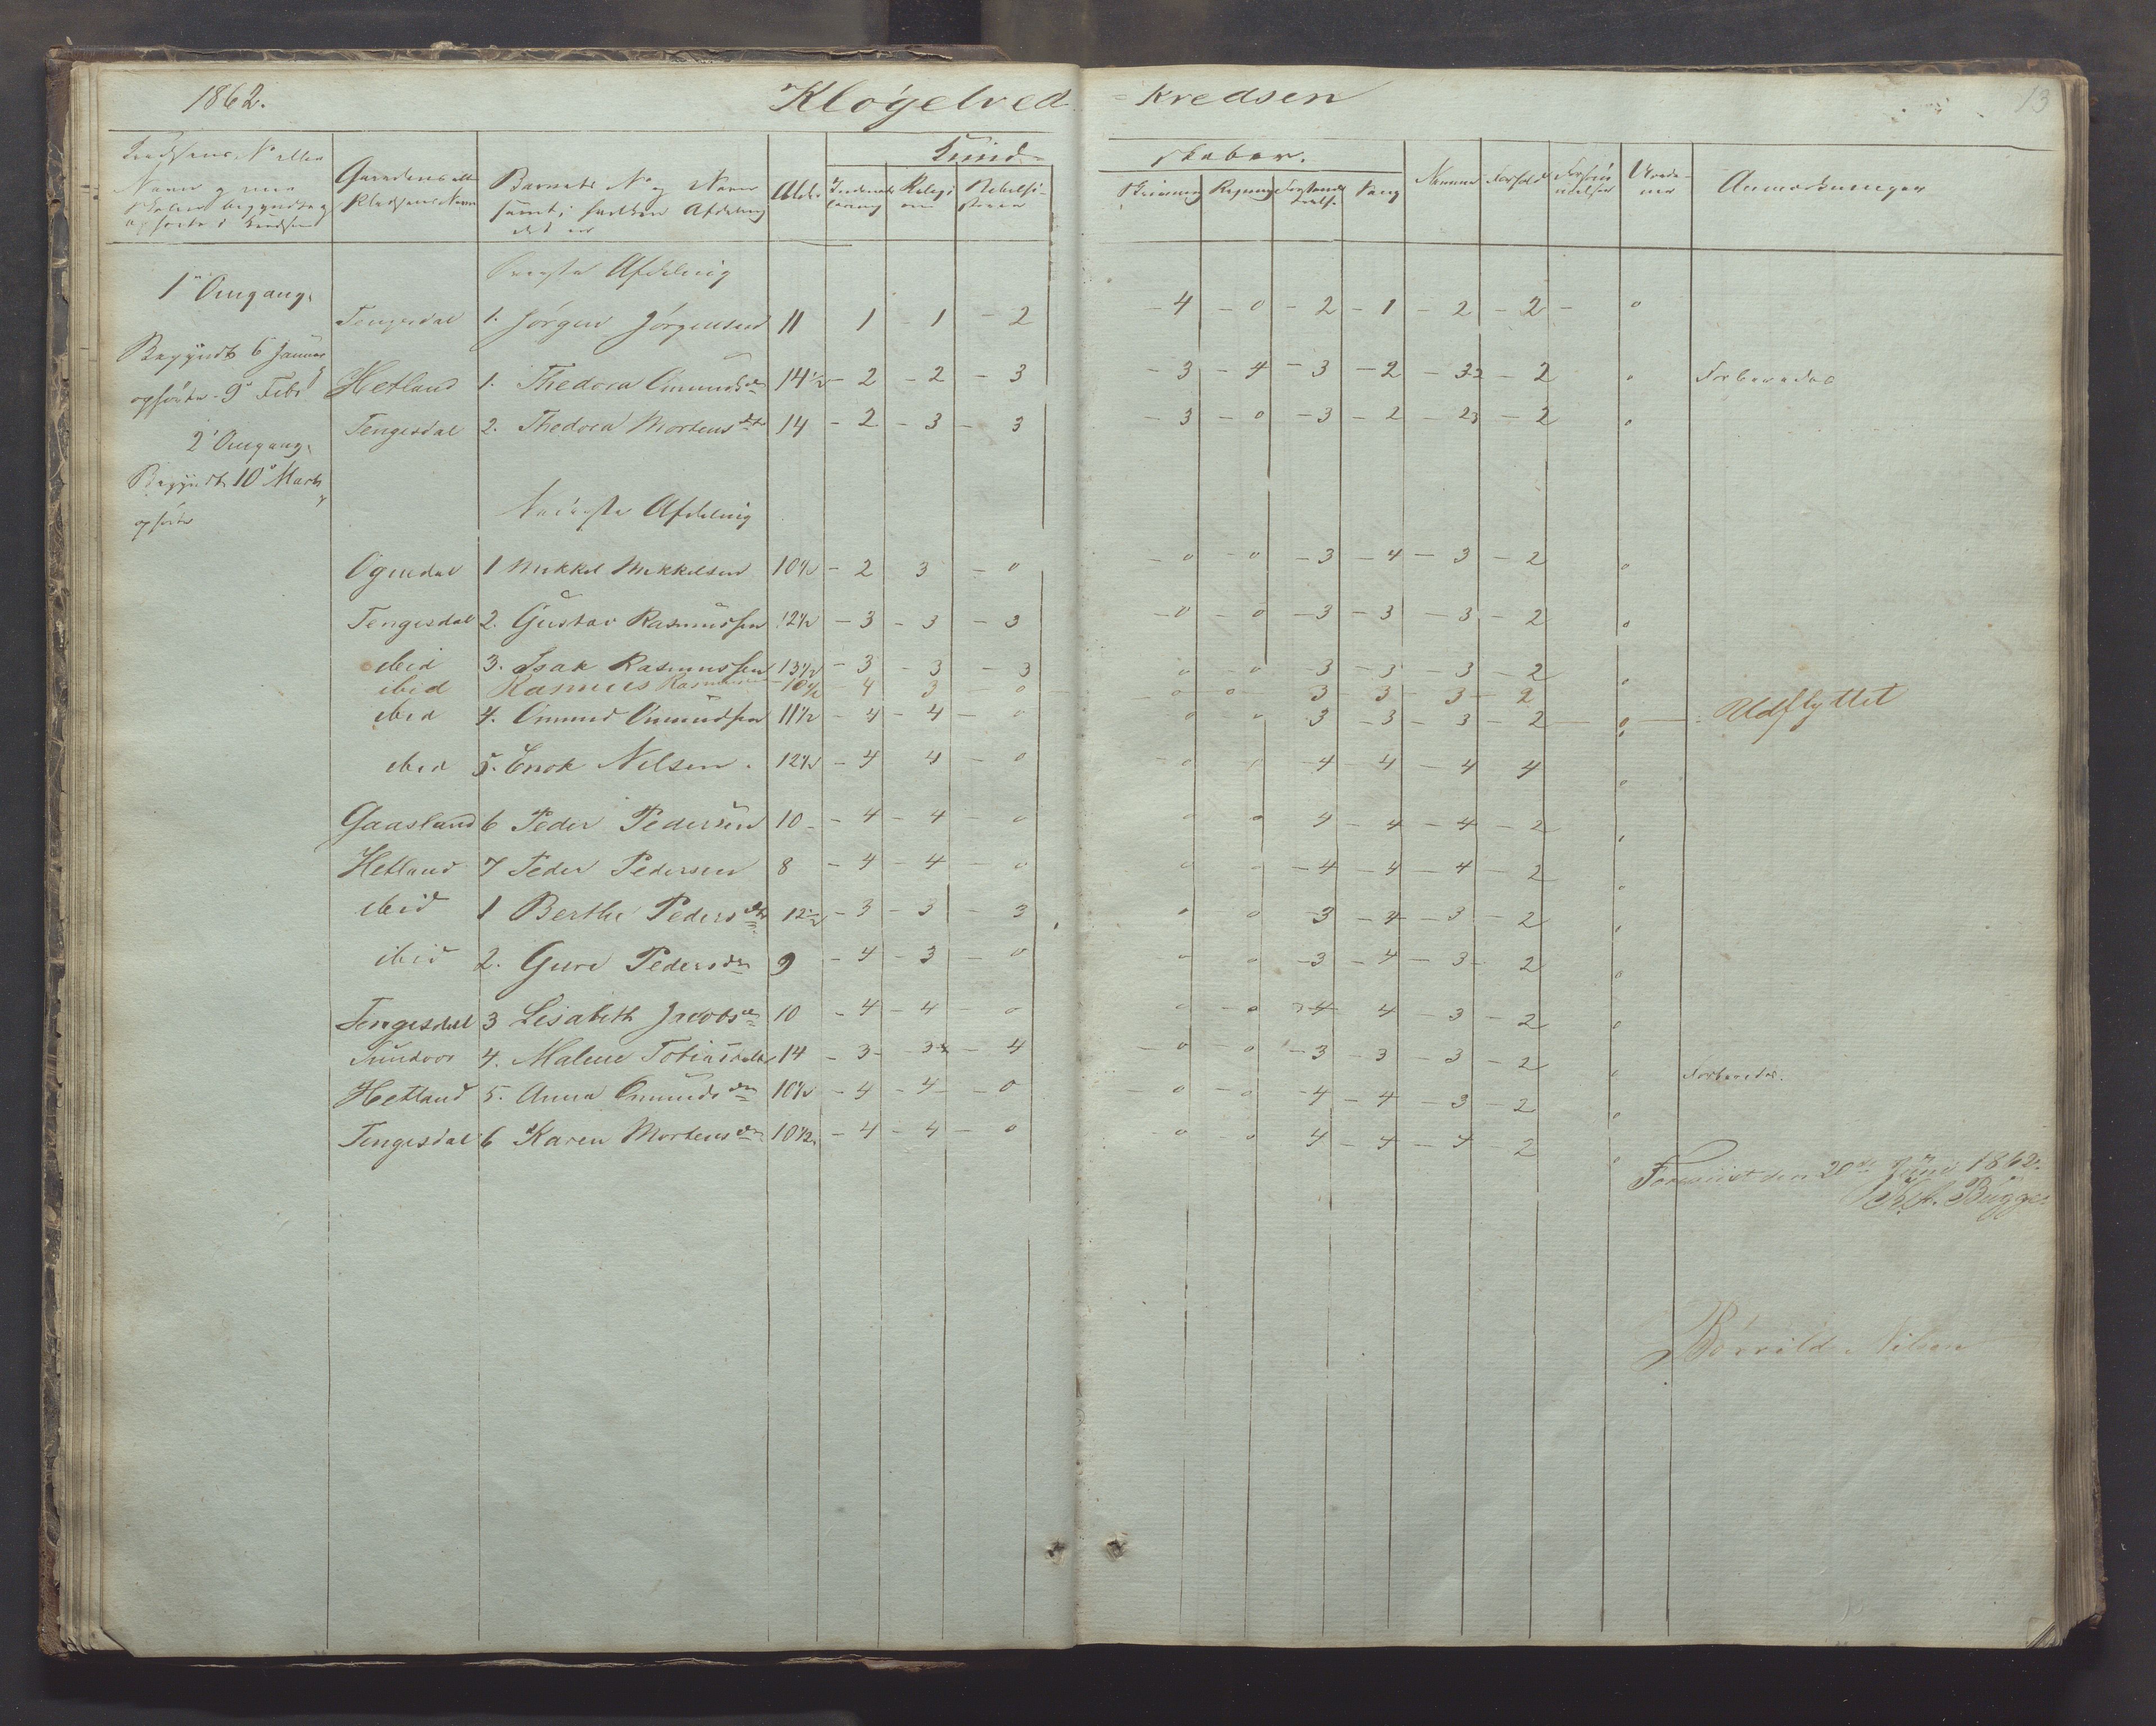 1862. Klogelved = Kredsen 13
Kund= skaber.
Gaardens eller Pladsens Navn
Barnets No og Navn samt i hvilken Afdeling det er
Alder
Skrivning Regning Sang
Anmærkninger
Øverste Afdeling
1ste Omgang,
Tengesdal 1. Jørgen Jørgensen 11 1 - 1 - 2 - 4 - 0 - 2 - 1 - 2 - 2 - 0
Begyndt 6 Januar
Hetland 1. Thedora Omundsdr 14½ - 2 - 2 - 3 - 3 - 4 - 3 - 2 - 32 - 2 0
ophørte 9de Febr
Tengesdal 2. Thedora Mortensdtr 14 - 2 - 3 - 3 - 3 - 0 - 3 - 2 - 23 - 2 0
2den Omgang,
Begyndt 10de Marts
Nederste Afdeling
ophørte
Ognedal 1 Mikkel Mikkelsen 10½ - 2 3 - 0 - 0 - 0 - 3 - 4 - 3 - 2 0
Tengesdal 2. Gustav Rasmussen 12½ - 3 - 3 - 3 - 0 - 0 - 3 - 3 - 3 - 2 0
ibid 3. Isak Rasmussen 13½ - 3 - 3 - 3 0 0 3 - 3 - 3 - 2 0
ibid Rasmus Rasmussen 10½ - 4 3 - 0 - 0 0 3 - 3 - 3 - 2 0 Udflyttet
ibid 4. Omund Omundsen 11½ - 4 - 4 - 0 0 0 3 - 3 - 3 - 2 0
ibid 5. Enok Nilsen. 12½ - 4 4 - 0 - 0 - 4 - 4 - 4 4 0
Gaasland 6 Peder Pedersen 10 - 4 - 4 0 0 0 4 - 4 - 4 - 2 0
Hetland 7 Peder Pedersen 8 - 4 - 4 - 0 0 0 - 4 - 4 - 4 - 2 0
ibid 1 Berthe Pedersdtr 12½ - 3 - 3 - 3 0 0 3 - 4 - 3 - 2 0
ibid 2. Guro Pedersdr 9 - 4 - 3 - 0 0 0 - 3 - 4 - 3 - 2 0
Tengesdal 3 Lisabeth Jacobsdr 10 - 4 - 4 - 0 0 - 0 4 4 - 3 - 2 0
4. Malene Tobiasdatr 14 - 3 - 3 - 4 - 0 - 0 - 3 - 3 - 3 - 2 0
Hetland 5. Anna Omundsdr 10½ - 4 - 4 - 0 - 0 - 0 - 4 - 4 - 3 - 2 0
Tengesdal 6 Karen Mortensdr 10½ - 4 - 4 - 0 - 0 - 0 4 - 4 - 4 2 0
Foreviist den 20de Juni 1862.
Bugge.
Nilsen